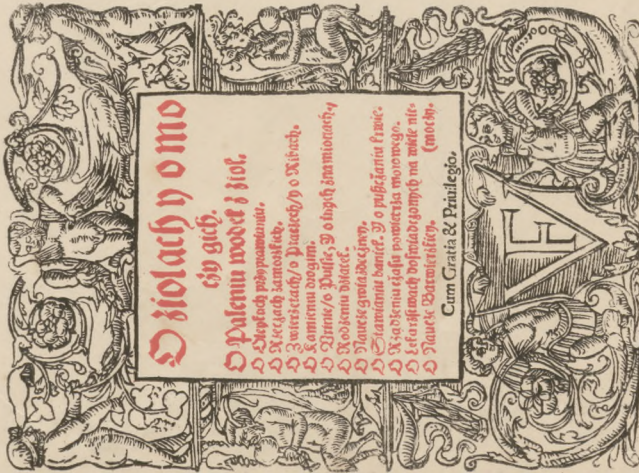 O ziolach y o mo
czy gich.
O Paleniu wodek z ziol.
O Oleykoch przyprawianiu.
O Rzeczach zamorskich.
O Zwierzętach/o Ptaciech/y o Ribach.
O Kamieniu drogim.
O Urinie/o Pulsie/y o inych znamionach.
O Rodzeniu dziatek.
O Nauce gwiazdeczney.
O Stawianiu baniek. Y o pusczaniu krwie.
O Rządzeniu czasu powietrza morowego.
O Lekarstwach doswiadczonych na wiele nie-
O Nauce Barwierskiey. (moczy.
Cum Gratia & Priuilegio.
F V